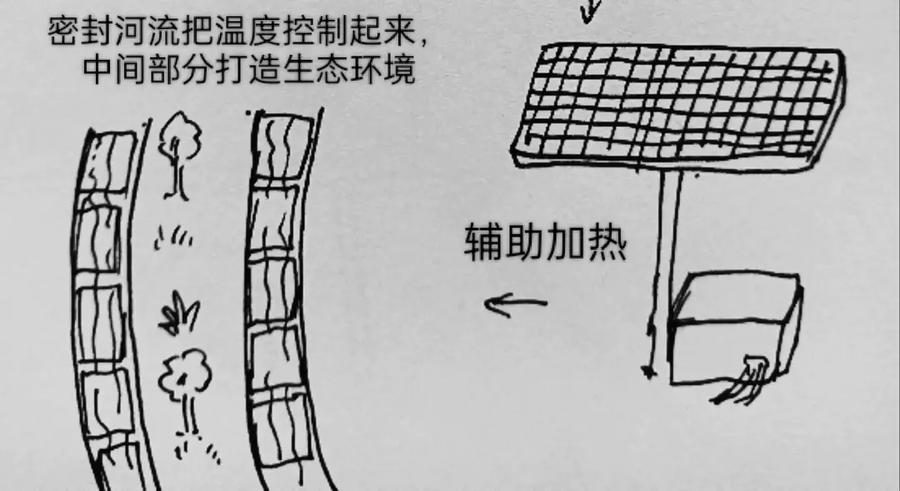 密封河流把温度控制起来，
中间部分打造生态环境
辅助加热